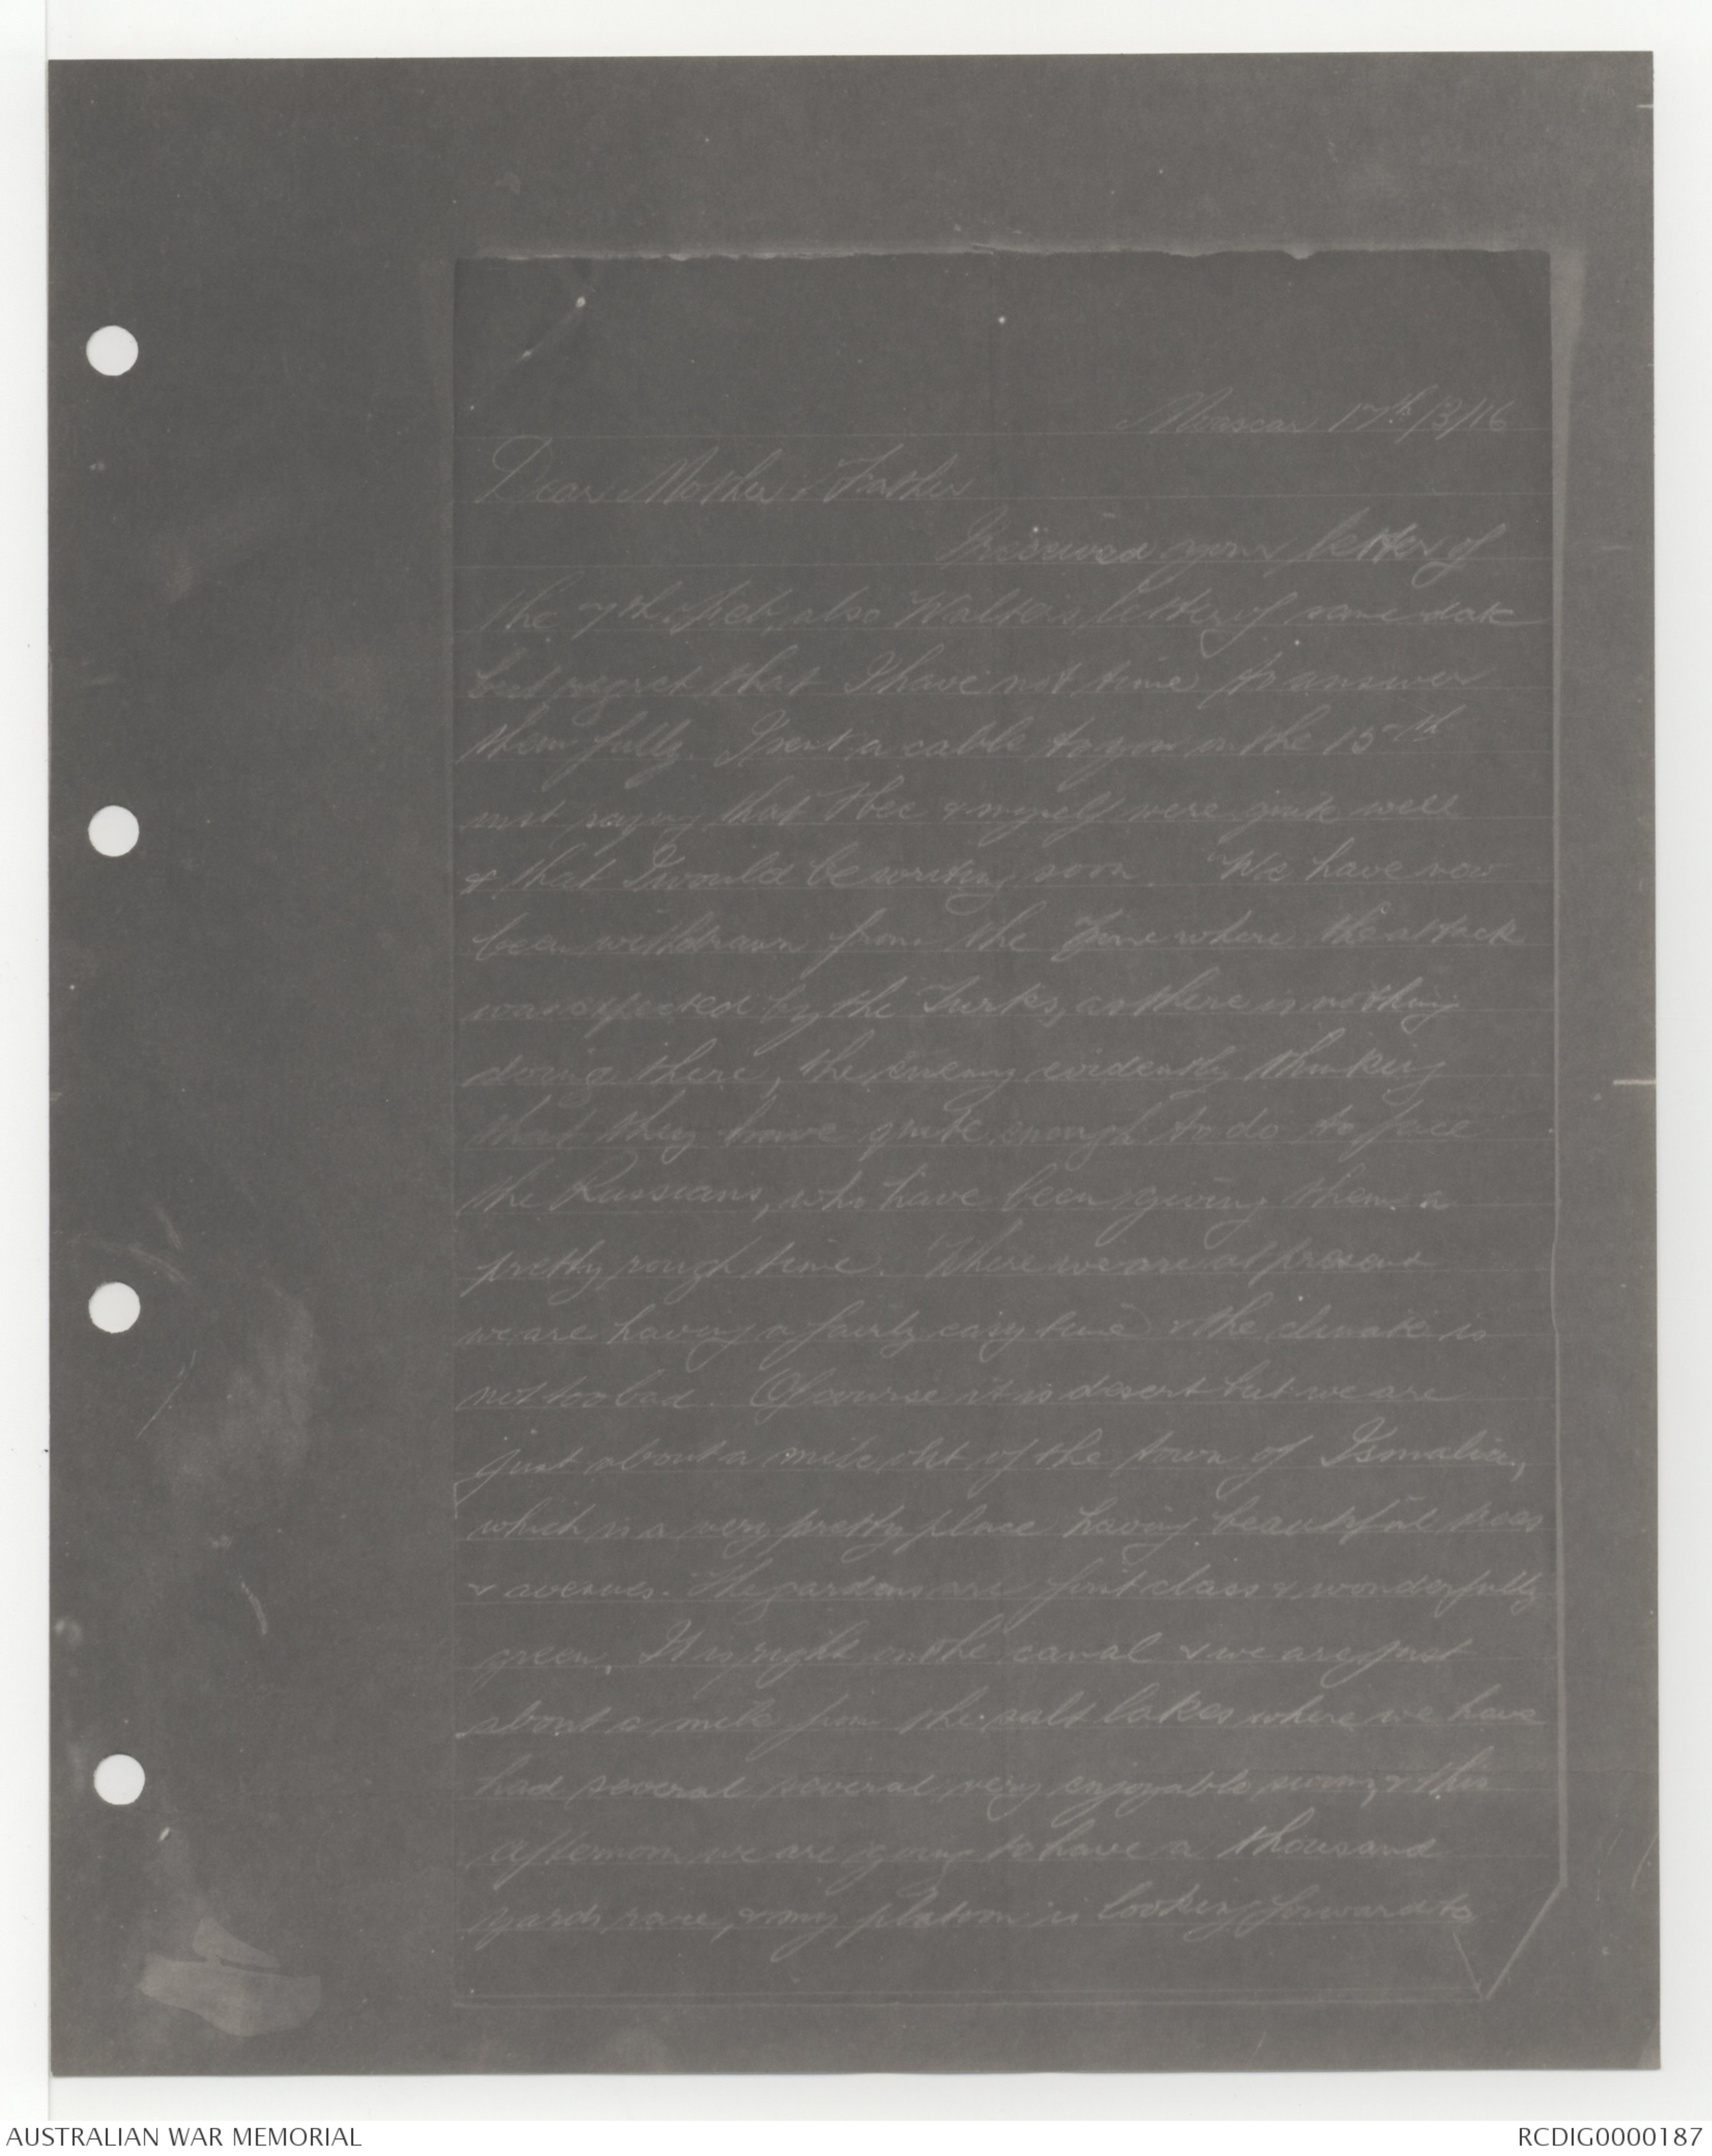 Moascar 17th/3/16
Dear Mother & Father
I received your letter of
the 7th. Feb, also Walters letter of same date
but regret that I have not time to answer
them fully. I sent a cable to you on the 15th
inst saying that Hec & myself were quite well
& that I would be writing soon. We have now
been withdrawn from the where the attack
was expected by the Turks, as there is nothing
doing there, the enemy evidently thinking
that they have quite enough to do to face
the Russians, who have been giving them a
pretty rough time. Where we are at present
we are having a fairly easy time & the climate is
not too bad. Of course it is desert but we are
just about a mile out of the town of Ismalia,
which is a very pretty place having beautiful trees
& avenues. The gardens are first class & wonderfully
green. It is right on the canal & we are just
about a mile from the salt lakes where we have
had several several very enjoyable swims, & this
afternoon we are going to have a thousand
yards race, & my platoon is looking forward to
AUSTRALIAN WAR MEMORIAL
RCDIG0000187